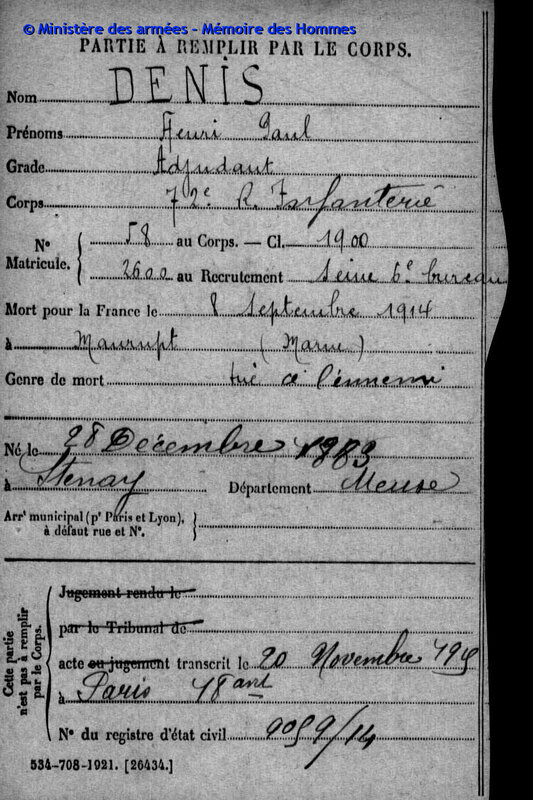 © Ministère des armées - Mémoire des Hommes
PARTIE À REMPLIR PAR LE CORPS.
Nom DENIS
Prénoms Henri Paul
Grade Adjudant
Corps 72e R. Infanterie
N° Matricule. { 58 au Corps. — Cl. 1900
2600 au Recrutement Seine 6e bureau
Mort pour la France le 8 Septembre 1914
à Maurupt (Marne)
Genre de mort tué à l'ennemi
Né le 28 Décembre 1883
à Stenay Département Meuse
Arrt municipal (pr Paris et Lyon), à défaut rue et N°. }
Cette partie n'est pas à remplir par le Corps.
Jugement rendu le
par le Tribunal de
acte ou jugement transcrit le 20 Novembre
à Paris 18 arrt
N° du registre d'état civil 9059/14
534-708-1921. [26434.]